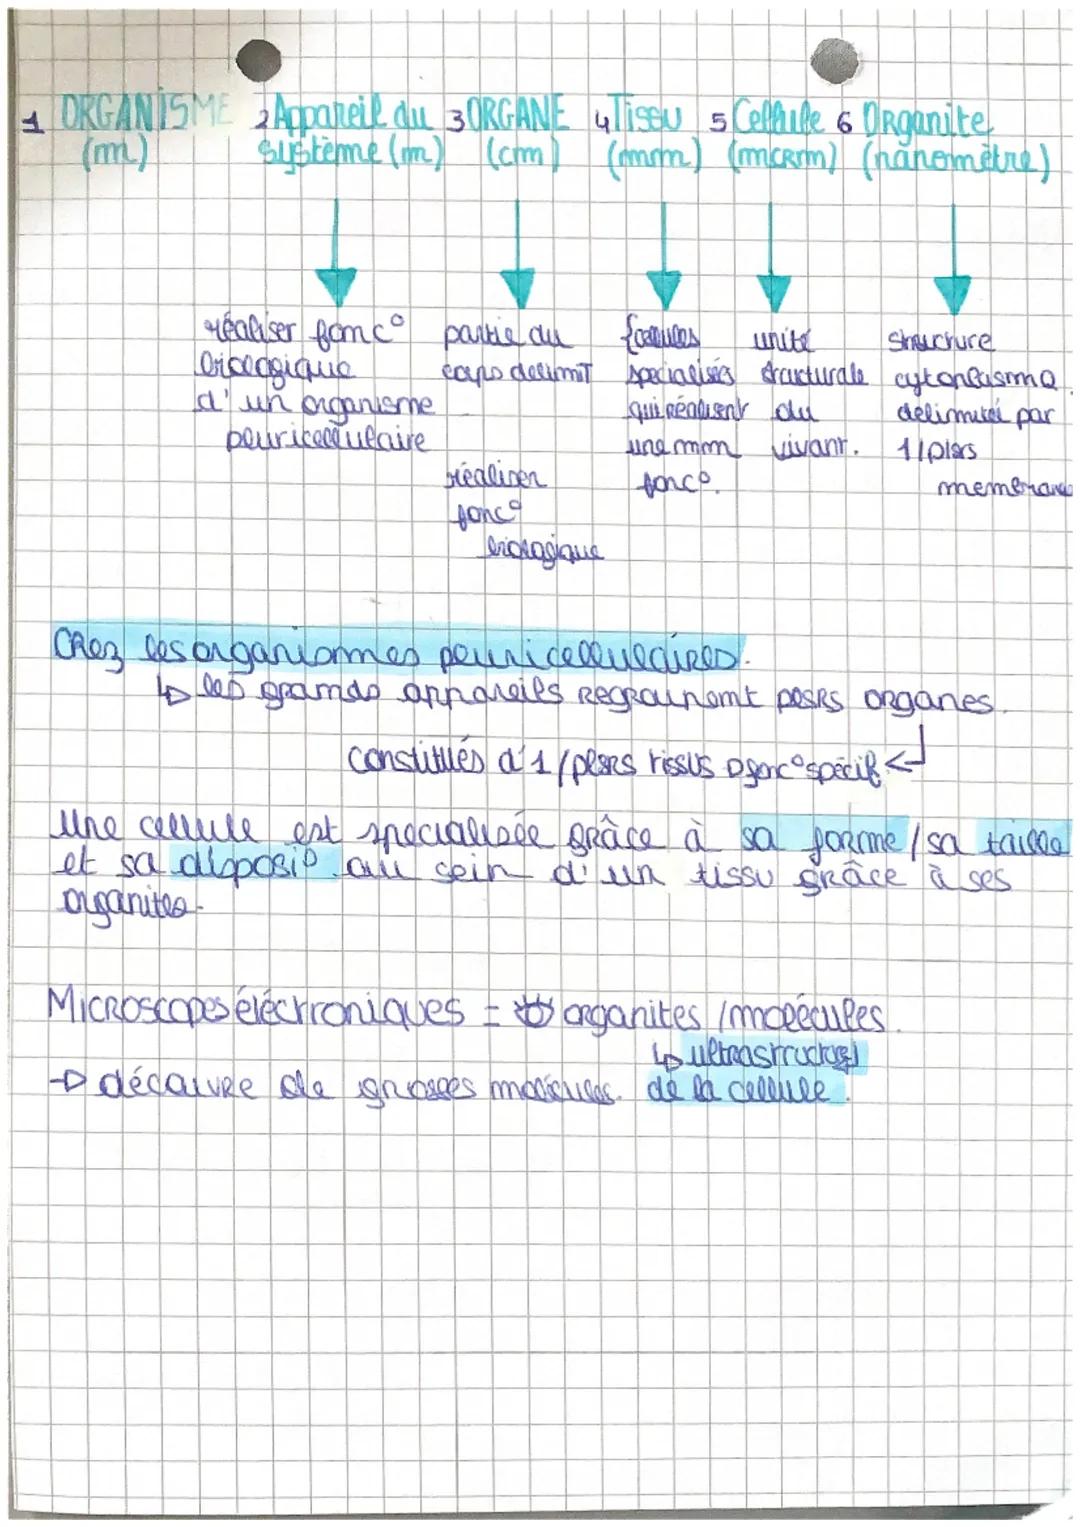 1 ORGANISME 2 Appareil du 3 ORGANE 4 Tissu 5 Cellule 6 Organite
(m) système (m) (cm) (mm) (mcrm) (nanomètre)
réaliser foncº partie du unité structure
biologique corps délimit spécialisés structurale cytoplasmq
d'un organisme qui réalisent du délimité par
pluricellulaire une mm vivant. 1/plsrs
réaliser foncº. membrane
foncº
biologique
Chez les organismes pluricellulaires.
↳ les grands appareils REGROUPENT plsrs organes.
constitués d'1/plsrs tissus foncº spécif ↵
Une cellule est spécialisée grâce à sa forme / sa taille
et sa disposiº au sein d'un tissu grâce à ses
organites.
Microscopes éléctroniques = organites / molécules.
↳ ultrastructure
→ découvre de grosses molécules. de la cellule.